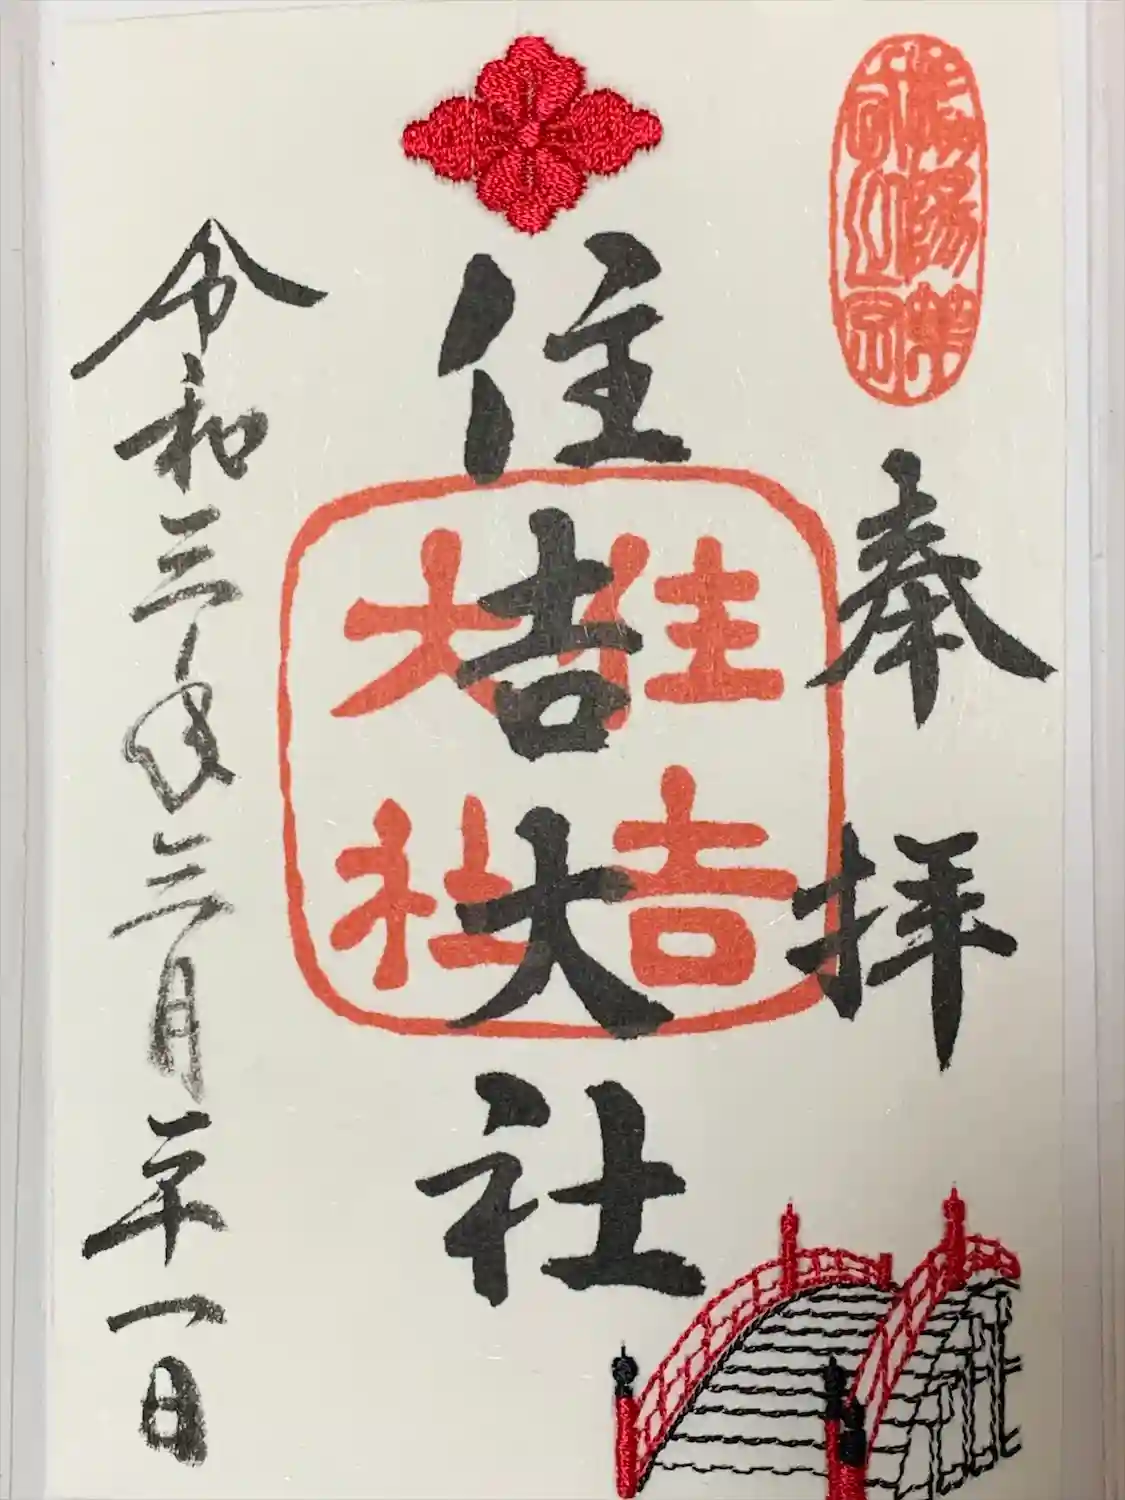 奉拝
住吉大社
住吉
大社
令和三年三月二十一日